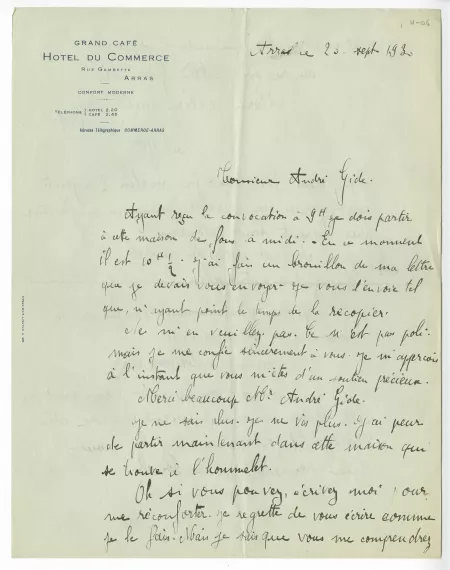 GRAND CAFÉ
HOTEL DU COMMERCE
RUE GAMBETTA
ARRAS
CONFORT MODERNE
TÉLÉPHONE HOTEL 2.20
CAFÉ 2.45
Adresse Télégraphique COMMERCE-ARRAS
Arras le 20 sept 193
Monsieur André Gide.
Ayant reçu la convocation à 9H je dois partir
à cette maison de fous à midi. - En ce moment
il est 10H 1/2 - j'ai fait un brouillon de ma lettre
que je devais vous envoyer - je vous l'envoie tel
que, n'ayant point le temps de la récopier.
Ne m'en veuillez pas. Ce n'est pas poli -
mais je me confie sincèrement à vous. je m'aperçois
à l'instant que vous m'êtes d'un soutien précieux.
Merci beaucoup Mr André Gide.
je ne sais plus. je ne vis plus. j'ai peur
de partir maintenant dans cette maison qui
se trouve à l'hommelet.
Oh si vous pouvez, écrivez moi pour
me réconforter. je regrette de vous écrire comme
je le fais. Mais je sais que vous me comprendrez